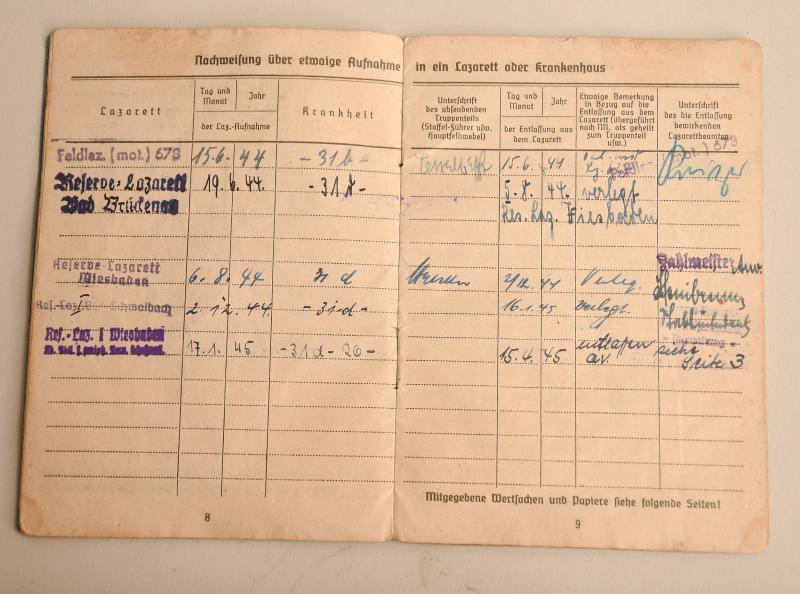 Nachweisung über etwaige Aufnahme in ein Lazarett oder Krankenhaus
Lazarett
Tag und Monat
Jahr
der Laz.-Aufnahme
Krankheit
Unterschrift
des absendenden
Truppenteils
(Staffel-Führer usw.
Hauptfeldwebel)
Tag und Monat
Jahr
der Entlassung aus
dem Lazarett
Etwaige Bemerkung
in Bezug auf die
Entlassung aus dem
Lazarett (übergeführt
nach NN. als geheilt
zum Truppenteil
usw.)
Unterschrift
des die Entlassung
bewirkenden
Lazarettbeamten
Feldlaz. (mot.) 673 15.6. 44 -31b- 15.6. 44
(mot.) 673
Reserve-Lazarett 19.6.44. -31d- 5.8. 44. verlegt
Bad Brückenau Res. Laz. Wiesbaden
Zahlmeister
Reserve-Lazarett
Wiesbaden 6. 8. 44 31 d 2/12 44 Verleg.
Schwalbach 2 12 44 -31-d- 16.1. 45 verlegt
Res.-Laz. I Wiesbaden
17.1. 45 -31d-26- 15.4. 45 entlassen siehe
av. Seite 3
Mitgegebene Wertsachen und Papiere siehe folgende Seiten!
8
9